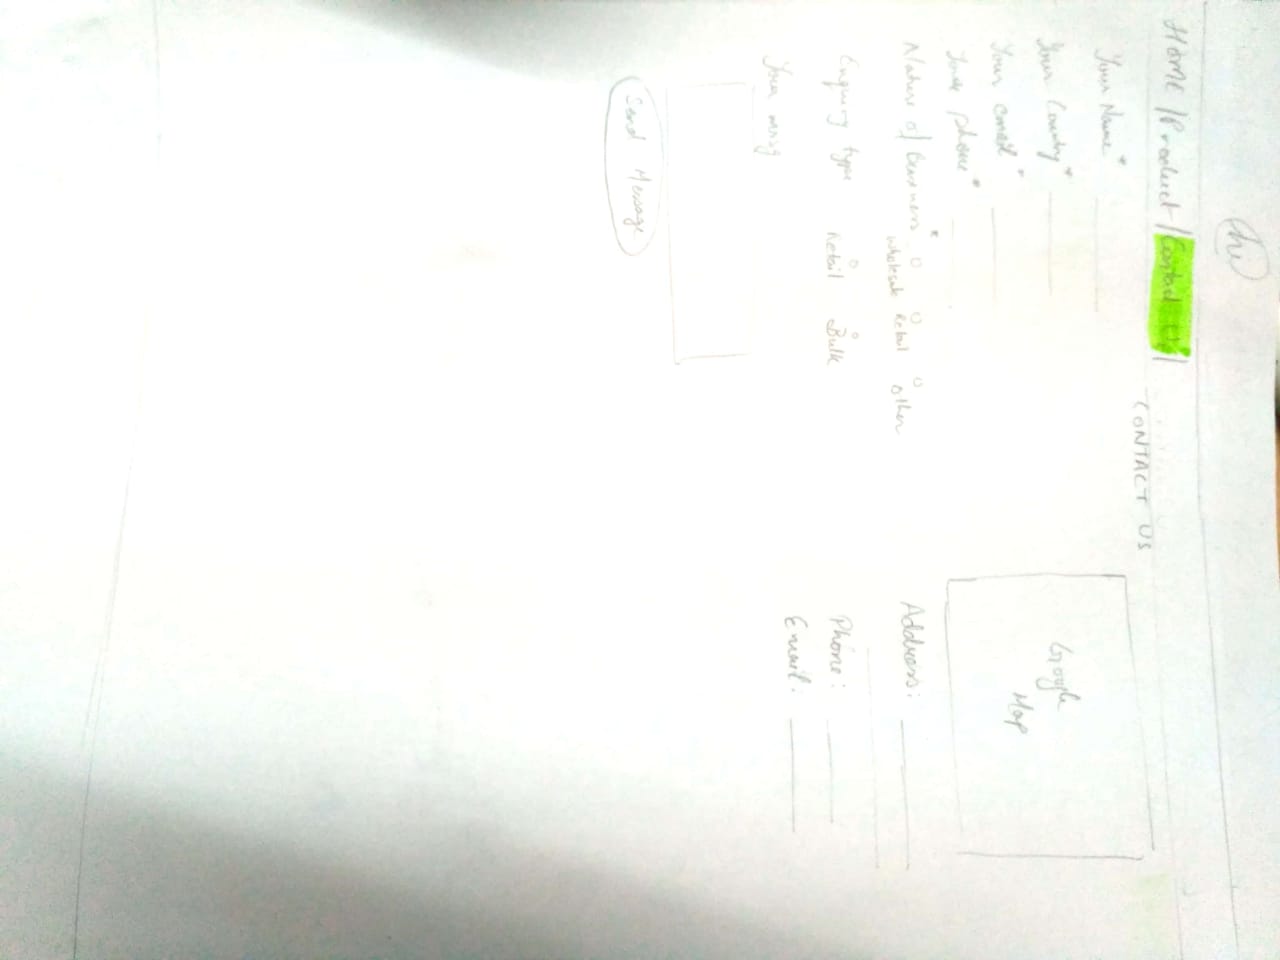 HOME / Product / Contact Us /
CONTACT US
Your Name *
Your Country *
Your email *
Your phone *
Nature of Business *
Wholesale Retail Other
Enquiry type Retail Bulk
Your messg
Send Message
Google
Map
Address:
Phone:
Email: